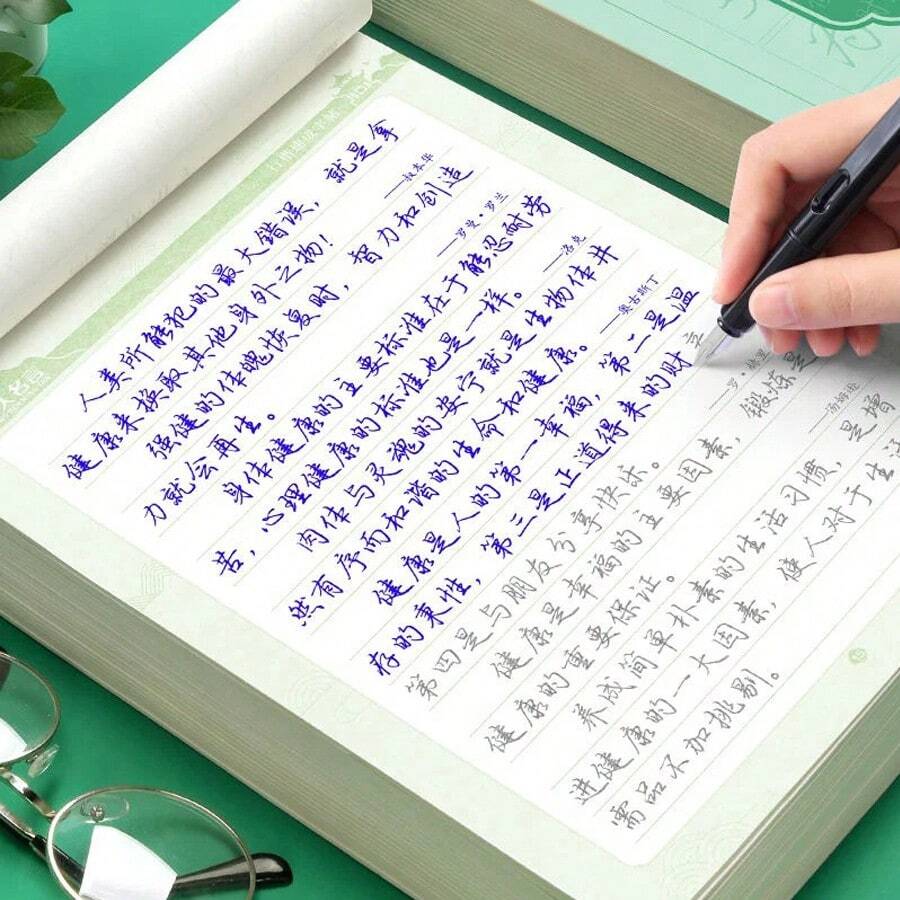 人类所能犯的最大错误，就是拿
健康来换取其他身外之物！
——叔本华
强健的体魄恢复时，智力和创造
力就会再生。
——罗曼·罗兰
身体健康的主要标准在于能忍耐劳
苦，心理健康的标准也是一样。
——洛克
肉体与灵魂的安宁就是生物体井
然有序而和谐的生命和健康。
——奥古斯丁
健康是人的第一幸福，第二是温
存的秉性，第三是正道得来的财
第四是与朋友分享快乐。
——罗·赫里
健康是幸福的主要因素，锻炼是
健康的重要保证。
——汤姆逊
养成简单朴素的生活习惯，是增
进健康的一大因素，使人对于生活
需品不加挑剔。
人名言